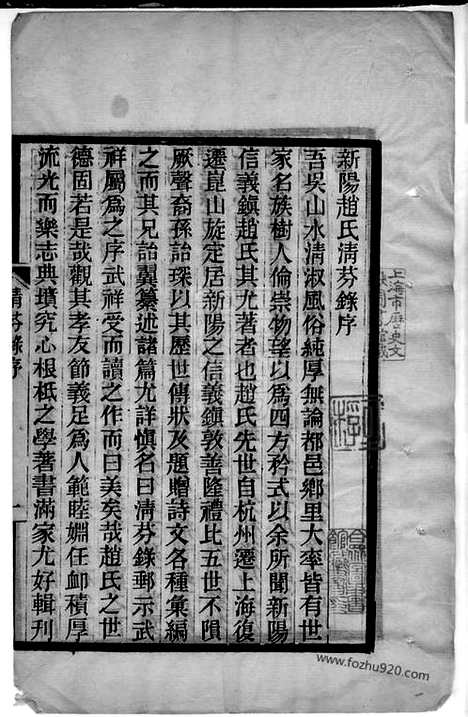 新陽趙氏淸芬錄序
吾吳山水淸淑風俗純厚無論都邑鄉里大率皆有世
家名族樹人倫崇物望以爲四方矜式以余所聞新陽
信義鎭趙氏其尤著者也趙氏先世自杭州遷上海復
遷崑山旋定居新陽之信義鎭敦善隆禮比五世不隕
厥聲裔孫詒琛以其歷世傳狀及題贈詩文各種彙編
之而其兄詒翼纂述諸篇尤詳愼名曰淸芬錄郵示武
祥屬爲之序武祥受而讀之作而曰美矣哉趙氏之世
德固若是哉觀其孝友節義足爲人範睦婣任卹積厚
流光而樂志典墳究心根柢之學著書滿家尤好輯刊
淸芬錄序
一
上海市歷史文
www.fozhu920.com